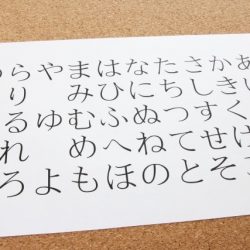 あい
かきくけ
さしすせそ
たちつてと
なにぬねの
はひふへほ
まみむめも
やゆよ
らりるれろ